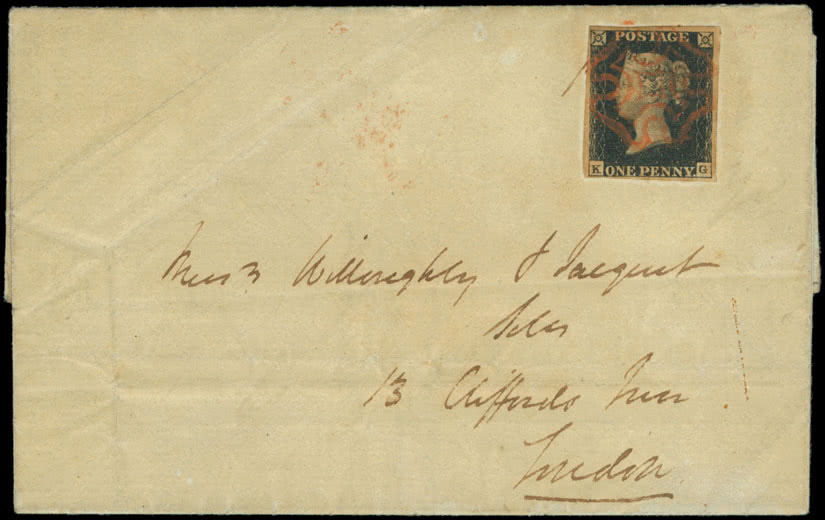 POSTAGE
K G
ONE PENNY
Messrs Willoughby & Jaquet
Solrs
13 Cliffords Inn
London